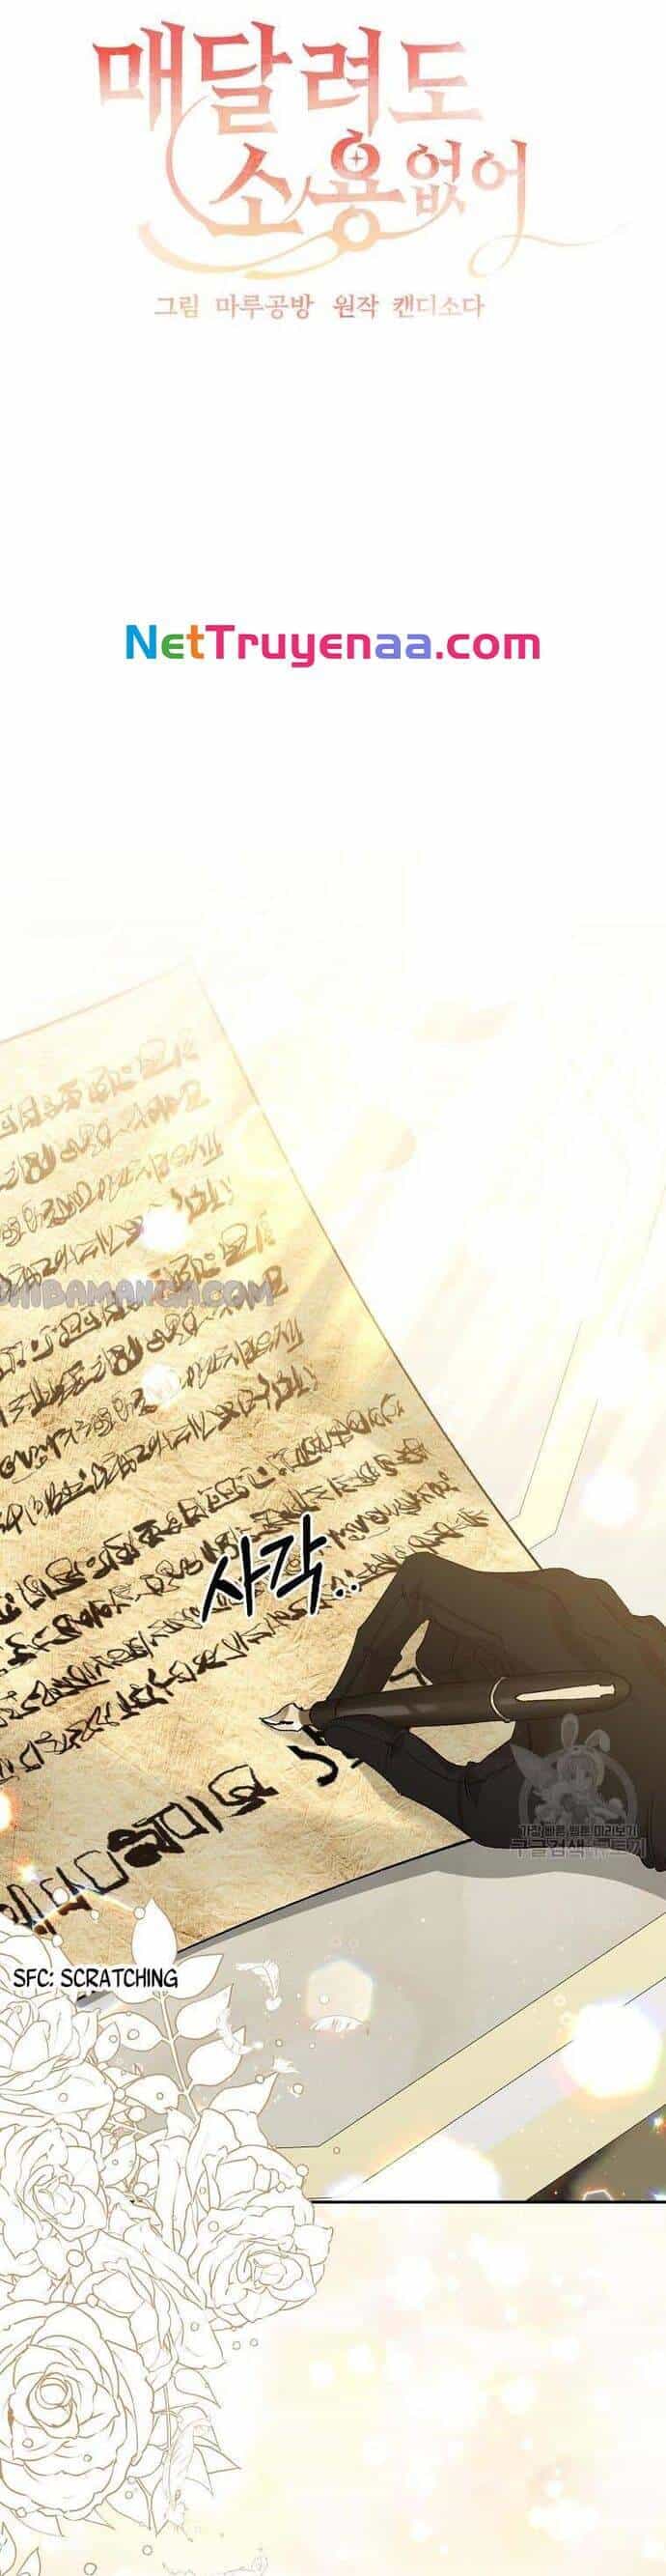 매달려도
소용없어
그림 마루공방 원작 캔디소다
NetTruyenaa.com
사각..
가장 빠른 웹툰 미리보기
SFC: SCRATCHING